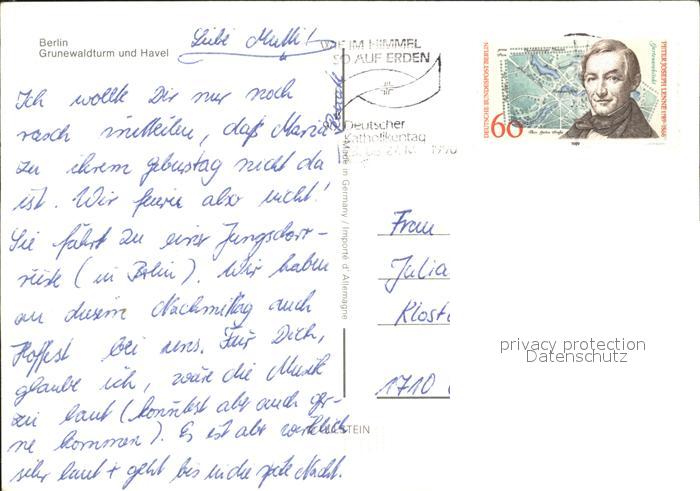 Berlin
Grunewaldturm und Havel
Liebe Mutti!
Ich wollte Dir nur noch
rasch mitteilen, daß Maria
zu ihrem Geburtstag nicht da
ist. Wir feiern also nicht!
Sie fährt zu einer Jungschar-
rüste (in Berlin). Wir haben
an diesem Nachmittag auch
Hoffest bei uns. Für Dich,
glaube ich, wäre die Musik
zu laut (könntest aber auch ger-
ne kommen). Es ist aber wirklich
sehr laut + geht bis in die späte Nacht.
WIE IM HIMMEL
SO AUF ERDEN
Deutscher
Katholikentag
1990
Made in Germany / Importé d'Allemagne
DEUTSCHE BUNDESPOST BERLIN
60
PETER JOSEPH LENNÉ 1789-1866
Gartenarchitekt
1989
Frau
Julia
Klost
1710
privacy protection
Datenschutz